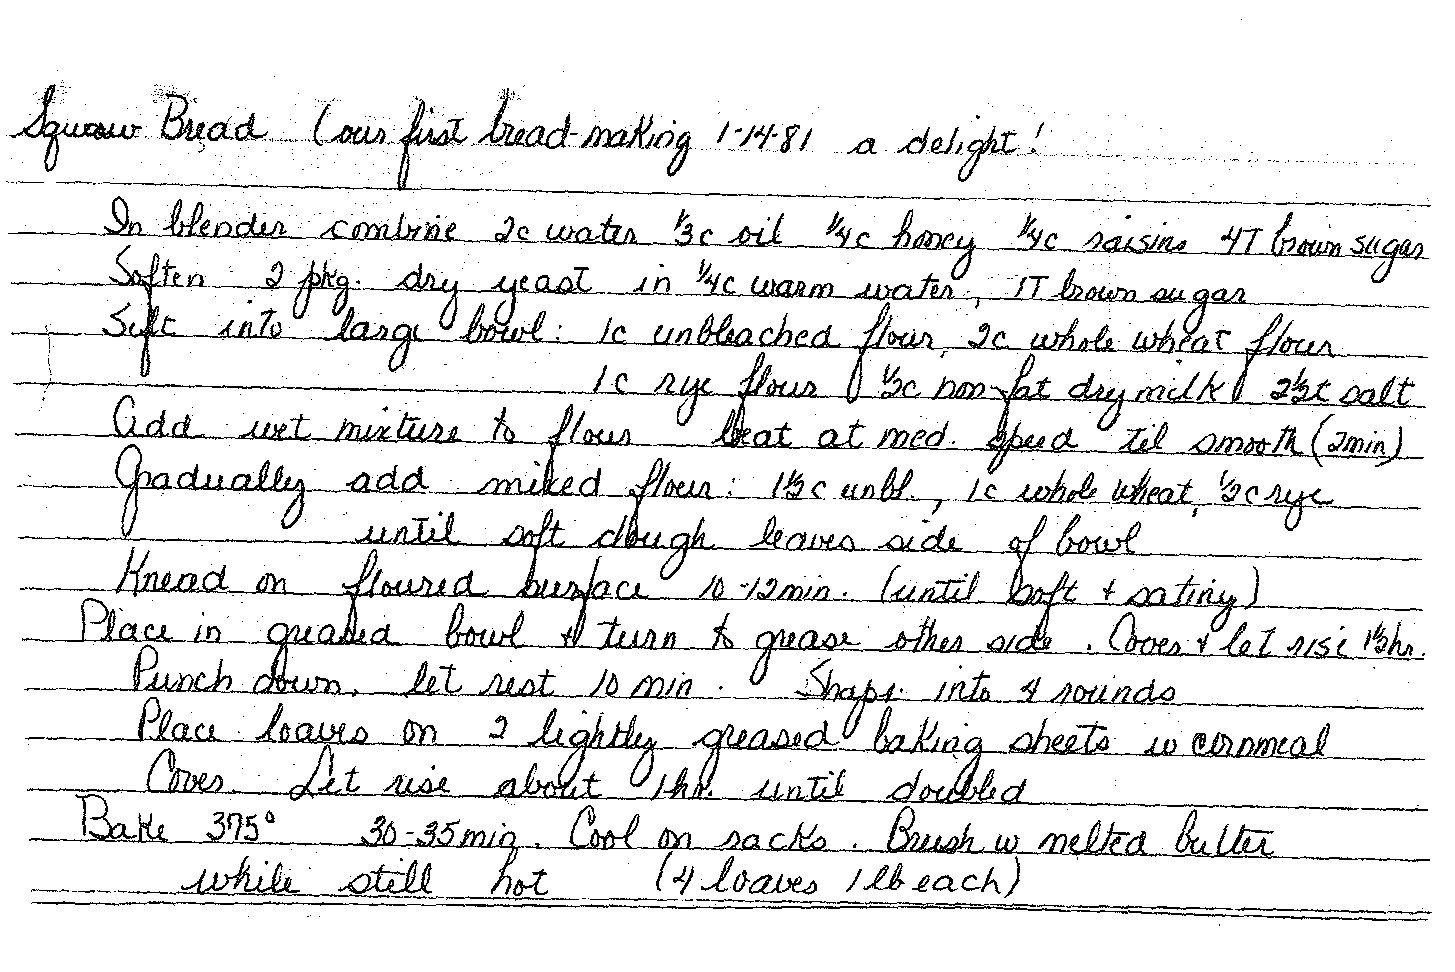 Squaw Bread (our first bread-making 1-14-81 a delight!
In blender combine 2c water 1/3c oil 1/4c honey 1/4c raisins 4T brown sugar
Soften 2 pkg. dry yeast in 1/4c warm water, 1T brown sugar
Sift into large bowl: 1c unbleached flour, 2c whole wheat flour
1c rye flour 1/2c non-fat dry milk 2 1/2t salt
Add wet mixture to flour beat at med. speed til smooth (2min)
Gradually add mixed flour: 1 1/2 c unbl., 1c whole wheat, 1/2c rye
until soft dough leaves side of bowl
Knead on floured surface 10-12min. (until soft + satiny)
Place in greased bowl + turn to grease other side. Cover + let rise 1 1/2hr.
Punch down. let rest 10 min. Shape into 4 rounds
Place loaves on 2 lightly greased baking sheets w cornmeal
Cover. Let rise about 1hr. until doubled
Bake 375° 30-35min. Cool on racks. Brush w melted butter
while still hot (4 loaves 1 lb each)